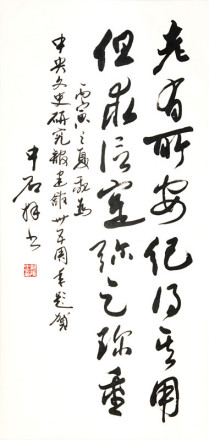 老有所安纪得其用
但求信实弥足珍重
丙寅之夏敬为
中央文史研究馆建馆卅五周年题贺
中石拜书